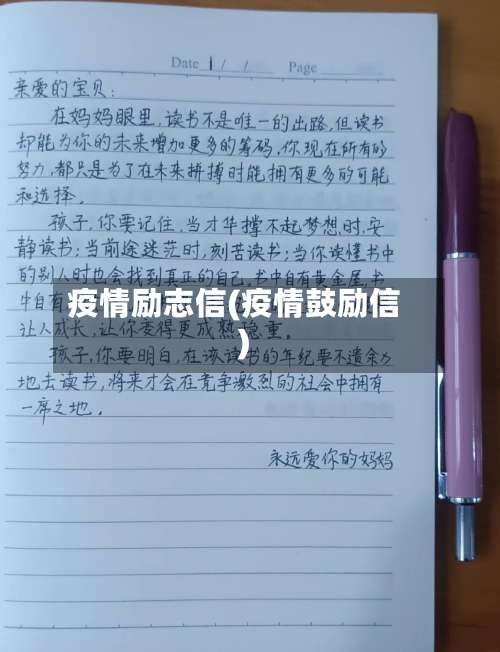 Date 1 / / Page
亲爱的宝贝:
在妈妈眼里,读书不是唯一的出路,但读书
却能为你的未来增加更多的筹码,你现在所有的
努力,都只是为了在未来拼搏时能拥有更多的可能
和选择。
孩子,你要记住,当才华撑不起梦想时,安
静读书;当前途迷茫时,刻苦读书;当你读懂书中
的别人时也会找到真正的自己。书中自有黄金屋,书
中自有
疫情励志信(疫情鼓励信
)
让人成长,让你变得更成熟稳重。
孩子,你要明白,在该读书的年纪要不遗余力
地去读书,将来才会在竞争激烈的社会中拥有
一席之地。
永远爱你的妈妈